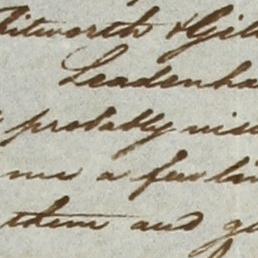 itworth & Gil
Leadenha
probably vis
me a few lin
them and g